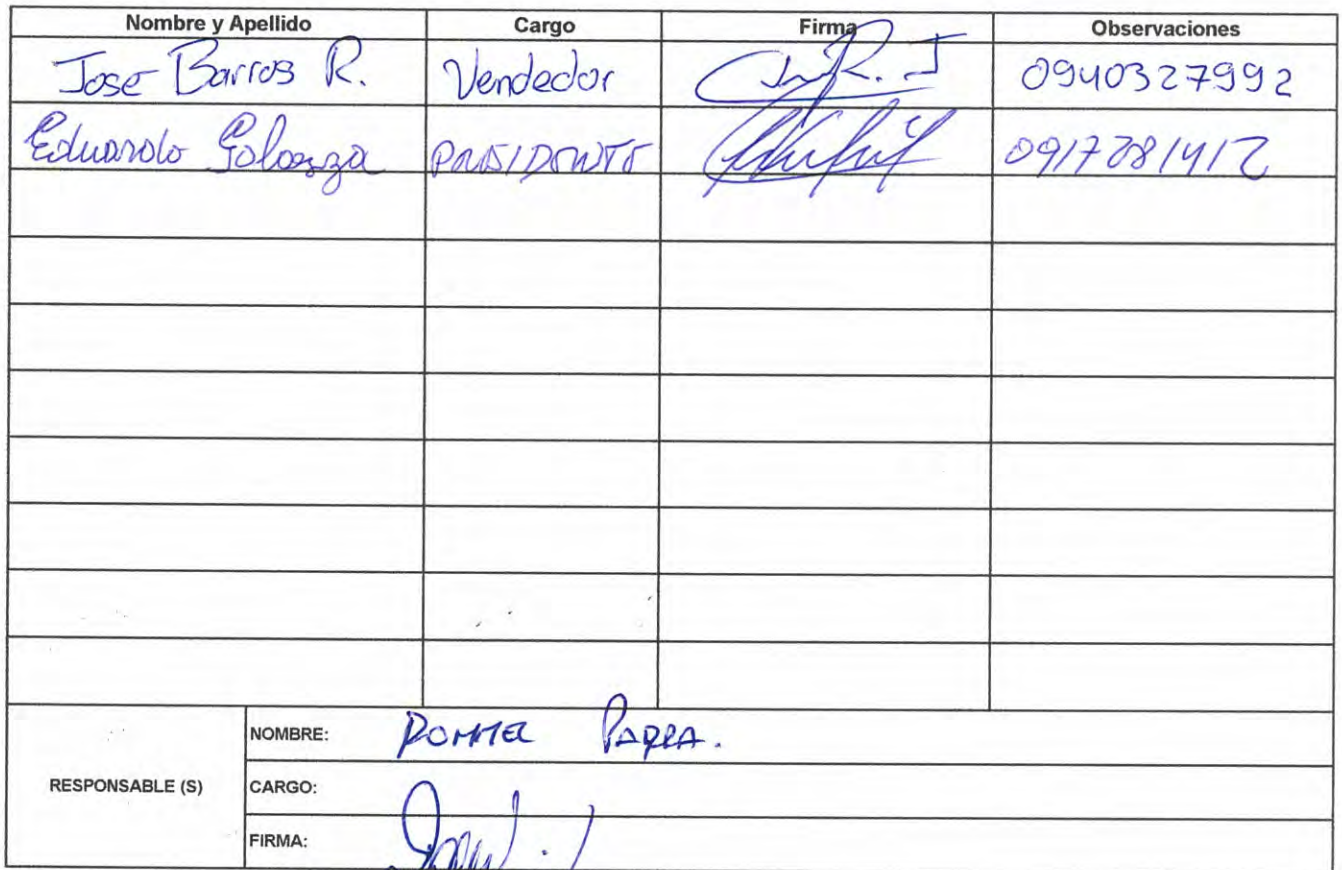 Nombre y Apellido Cargo Firma Observaciones
Jose Barros R. Vendedor 0940327992
Eduardo 0917281412
RESPONSABLE (S)
NOMBRE: Rommel Parra.
CARGO:
FIRMA: